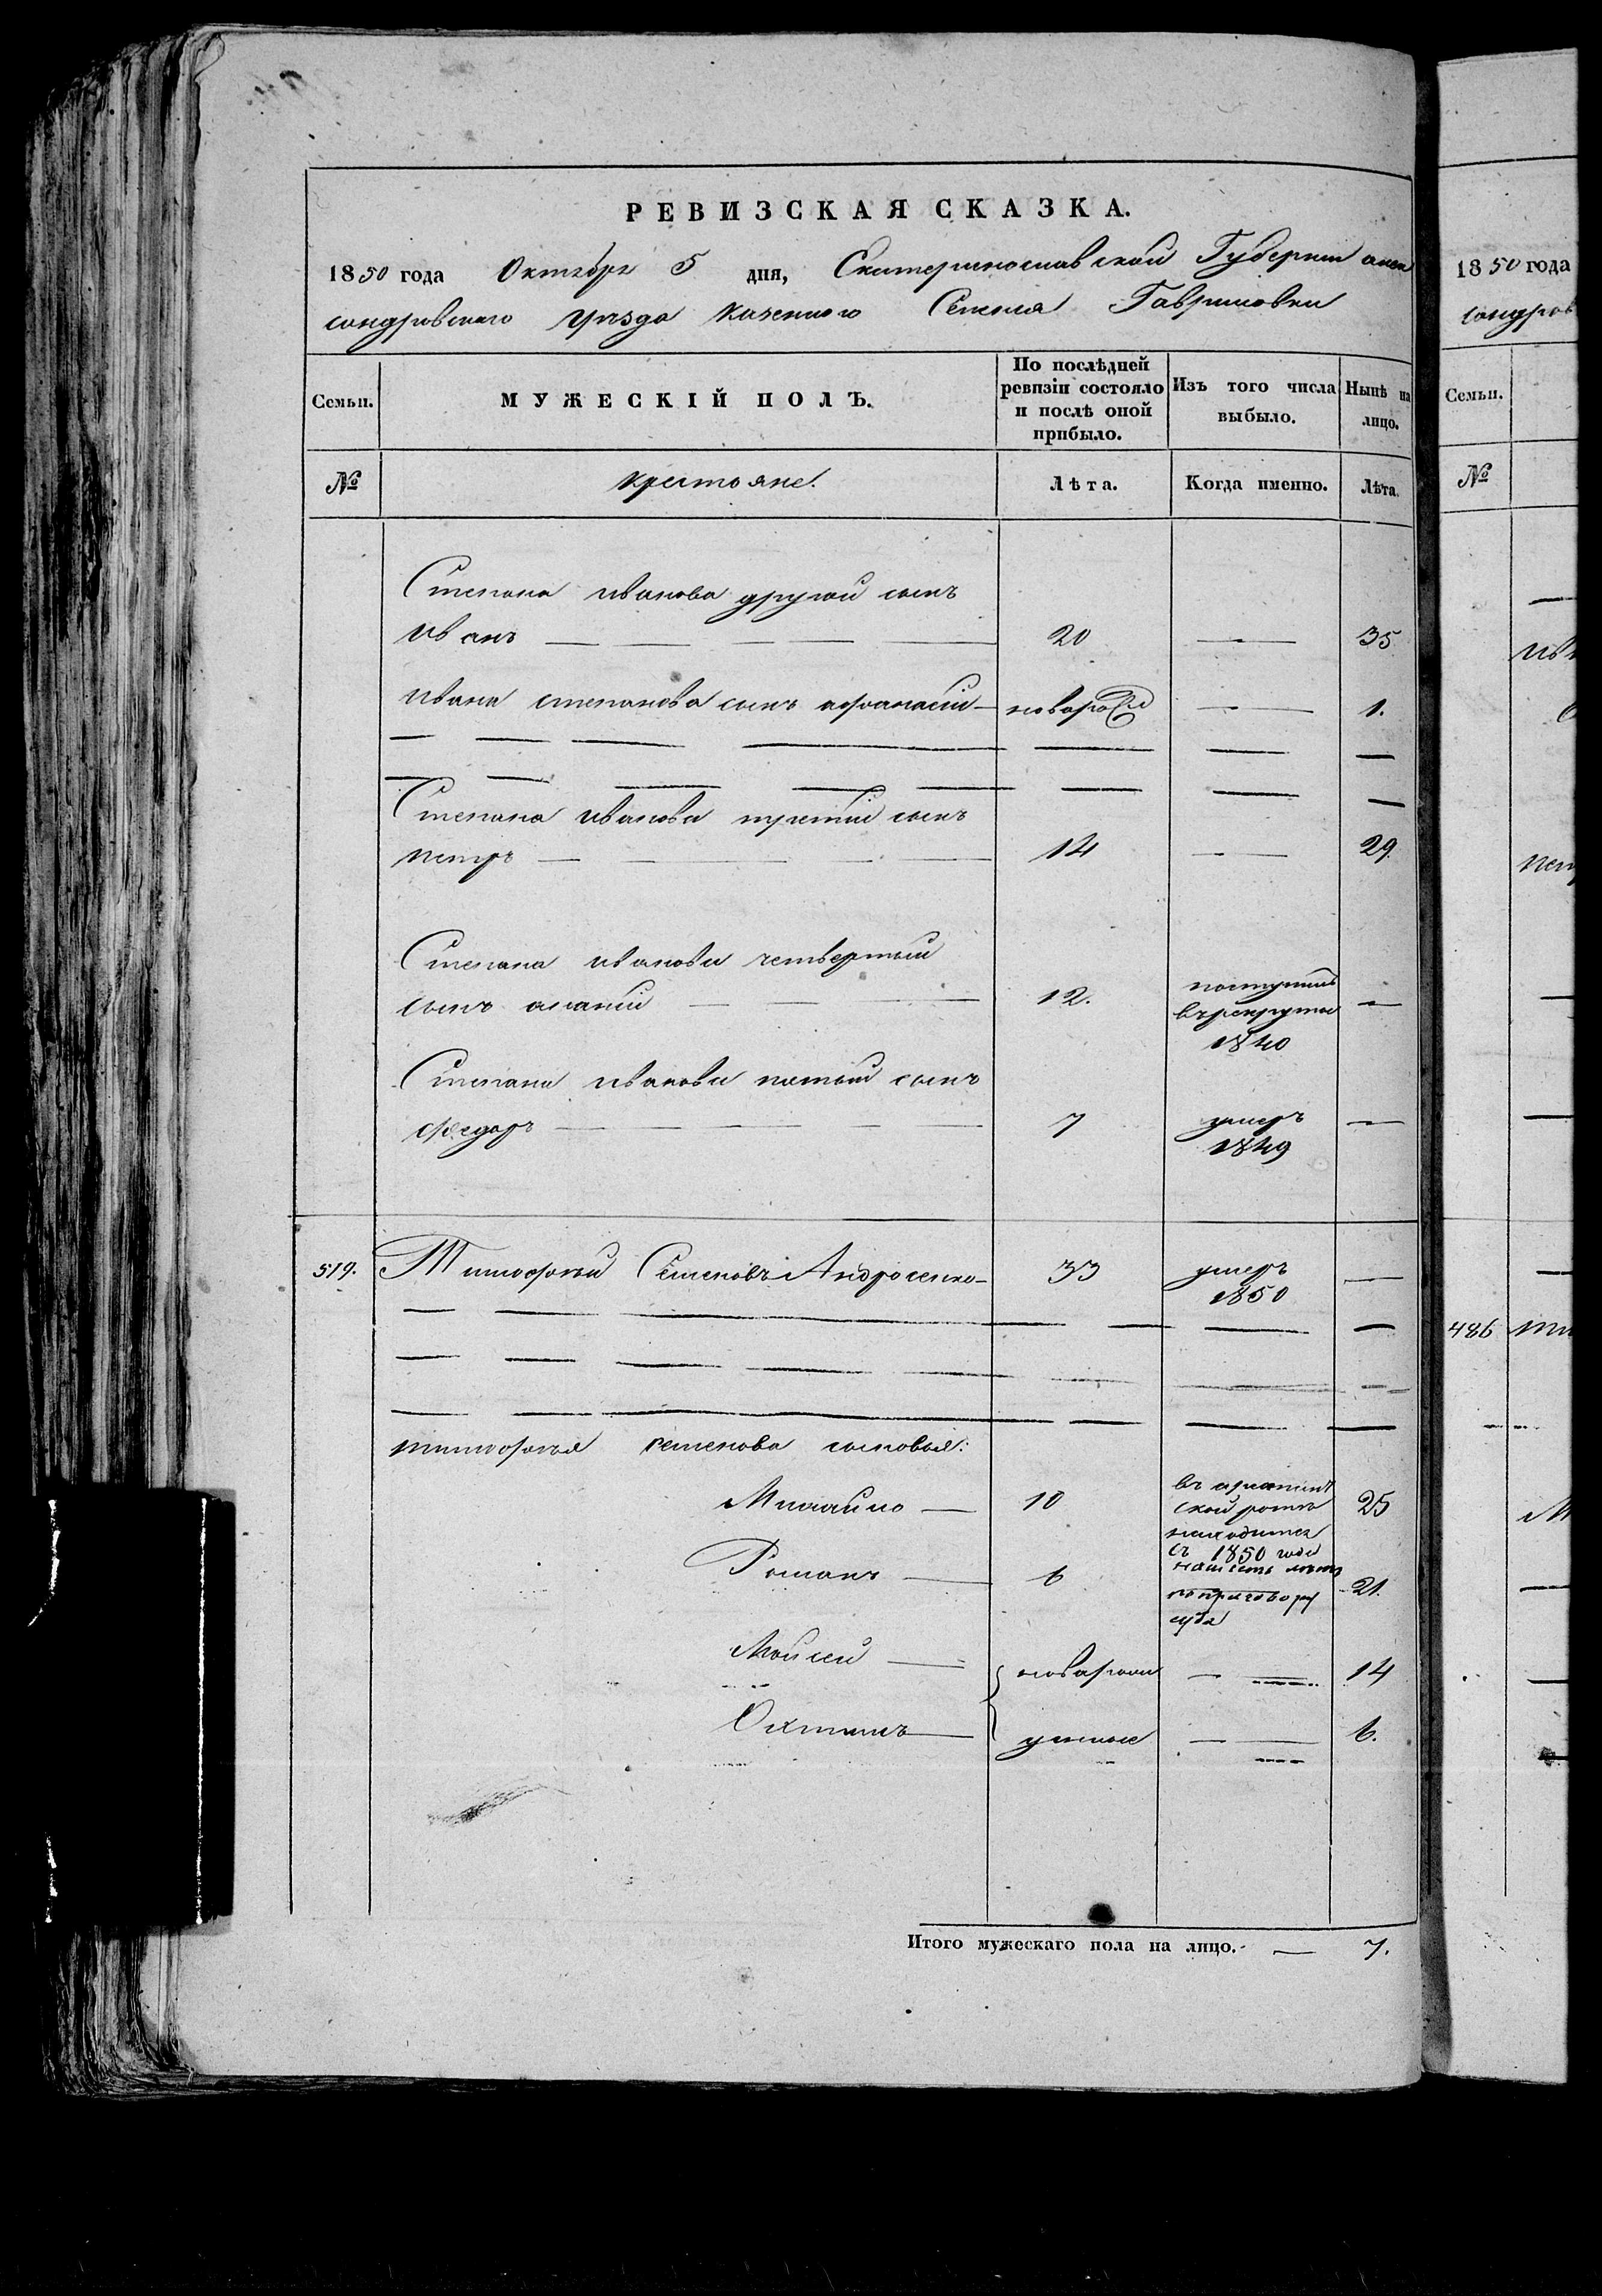 РЕВИЗСКАЯ СКАЗКА.
1850 года Октября 5 дня, Екатеринославской Губернии алек
сандровскаго уѣзда казеннаго Селения Гавриловки
Семьи. МУЖЕСКІЙ ПОЛЪ. По послѣдней ревизіи состояло и послѣ оной прибыло. Изъ того числа выбыло. Нынѣ на лицо.
№ крестьяне. Лѣта. Когда именно. Лѣта.
Степана иванова другой сынъ
иванъ 20 35
ивана степанова сынъ афанасий новорож 1.
Степана иванова третий сынъ
петръ 14 29
Степана иванова четвертый
сынъ ананий 12. поступилъ
въ рекруты
1840
Степана иванова пятый сынъ
федоръ 7 умеръ
1849
519. Тимофѣй Семеновъ Андросенко 33 умеръ
1850
тимофѣя семенова сыновья:
Михайло 10 въ арестант
ской ротѣ 25
находится
съ 1850 года
Романъ 6 на шесть лѣтъ 21.
по приговору
суда
Мойсей новорож 14
Охтимъ денные 6.
Итого мужескаго пола на лицо. 7.
1850 года
сандров
Семьи.
№
ив
пет
486 ти
М